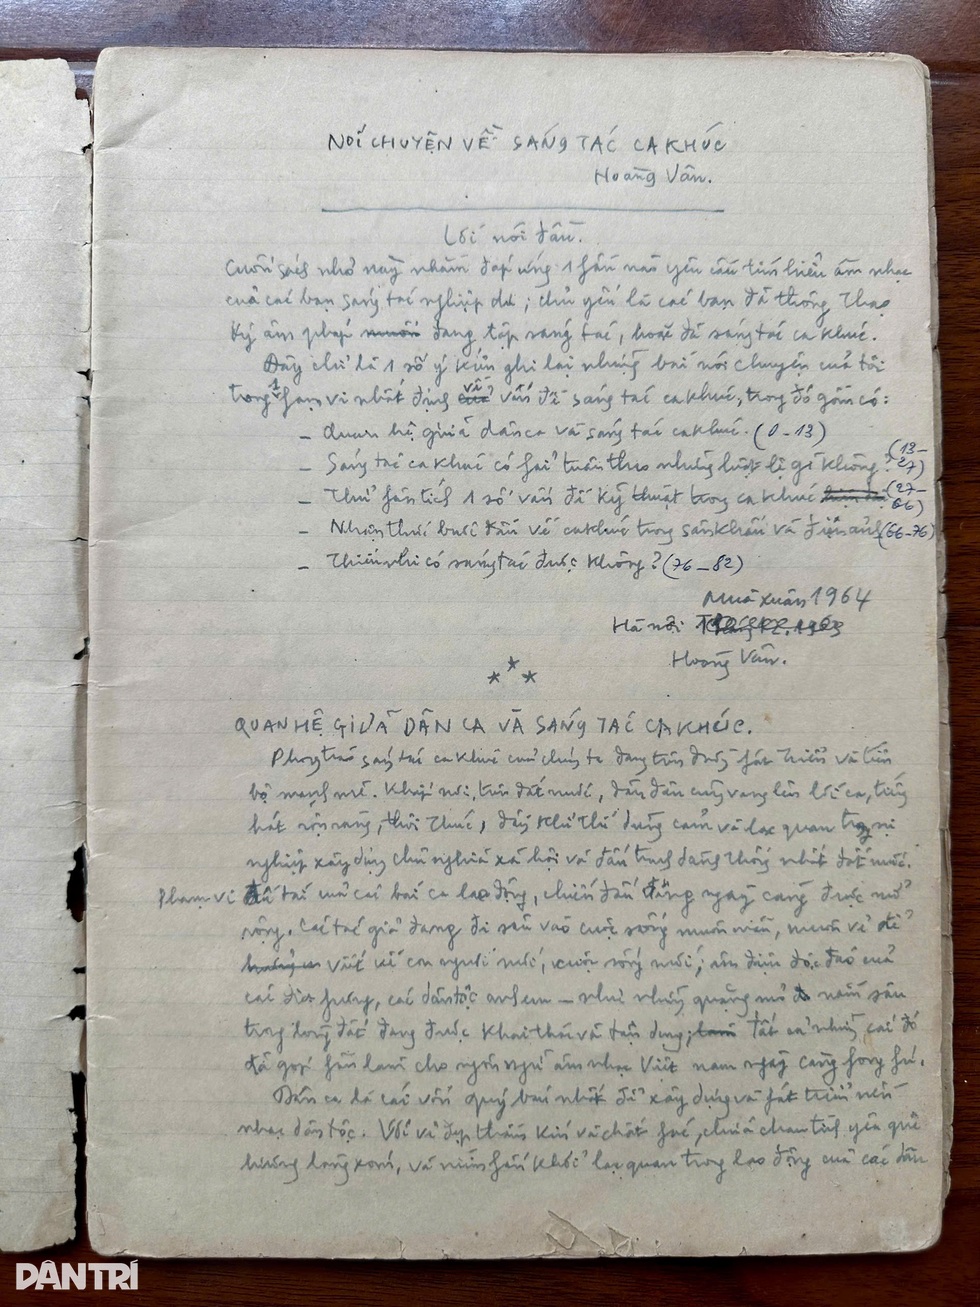 NÓI CHUYỆN VỀ SÁNG TÁC CA KHÚC
Hoàng Vân.
Lời nói đầu.
Cuốn sách nhỏ này nhằm đáp ứng 1 phần nào yêu cầu tìm hiểu âm nhạc
của các bạn sáng tác nghiệp dư; chủ yếu là các bạn đã thông thạo
ký âm pháp muốn đang tập sáng tác, hoặc đã sáng tác ca khúc.
Đây chỉ là 1 số ý kiến ghi lại những bài nói chuyện của tôi
trong 1 phạm vi nhất định về vấn đề sáng tác ca khúc, trong đó gồm có:
- Quan hệ giữa dân ca và sáng tác ca khúc. (0-13)
- Sáng tác ca khúc có phải tuân theo những luật lệ gì không? (13-27)
- Thử phân tích 1 số vấn đề kỹ thuật trong ca khúc (27-66)
- Nhận thức bước đầu về ca khúc trong sân khấu và điện ảnh (66-76)
- Thiếu nhi có sáng tác được không? (76-82)
Mùa xuân 1964
Hà nội Tháng 12.1963
Hoàng Vân.
QUAN HỆ GIỮA DÂN CA VÀ SÁNG TÁC CA KHÚC.
Phong trào sáng tác ca khúc của chúng ta đang trên đường phát triển và tiến
bộ mạnh mẽ. Khắp nơi, trên đất nước, đâu đâu cũng vang lên lời ca, tiếng
hát rộn ràng, thôi thúc, đầy khí thế dũng cảm và lạc quan trong sự
nghiệp xây dựng chủ nghĩa xã hội và đấu tranh dành thống nhất đất nước.
Phạm vi đề tài của các bài ca lao động, chiến đấu đã ngày càng được mở
rộng. Các tác giả đang đi sâu vào cuộc sống muôn màu, muôn vẻ để
viết về con người mới, cuộc sống mới; âm điệu độc đáo của
các địa phương, các dân tộc anh em - như những quặng mỏ nằm sâu
trong lòng đất đang được khai thác và tận dụng; Tất cả những cái đó
đã góp phần làm cho ngôn ngữ âm nhạc Việt nam ngày càng phong phú.
Dân ca là cái vốn quý báu nhất để xây dựng và phát triển nền
nhạc dân tộc. Với vẻ đẹp thầm kín và chất phác, chứa chan tình yêu quê
hương làng xóm, và niềm phấn khởi lạc quan trong lao động của các dân
DÂN TRÍ